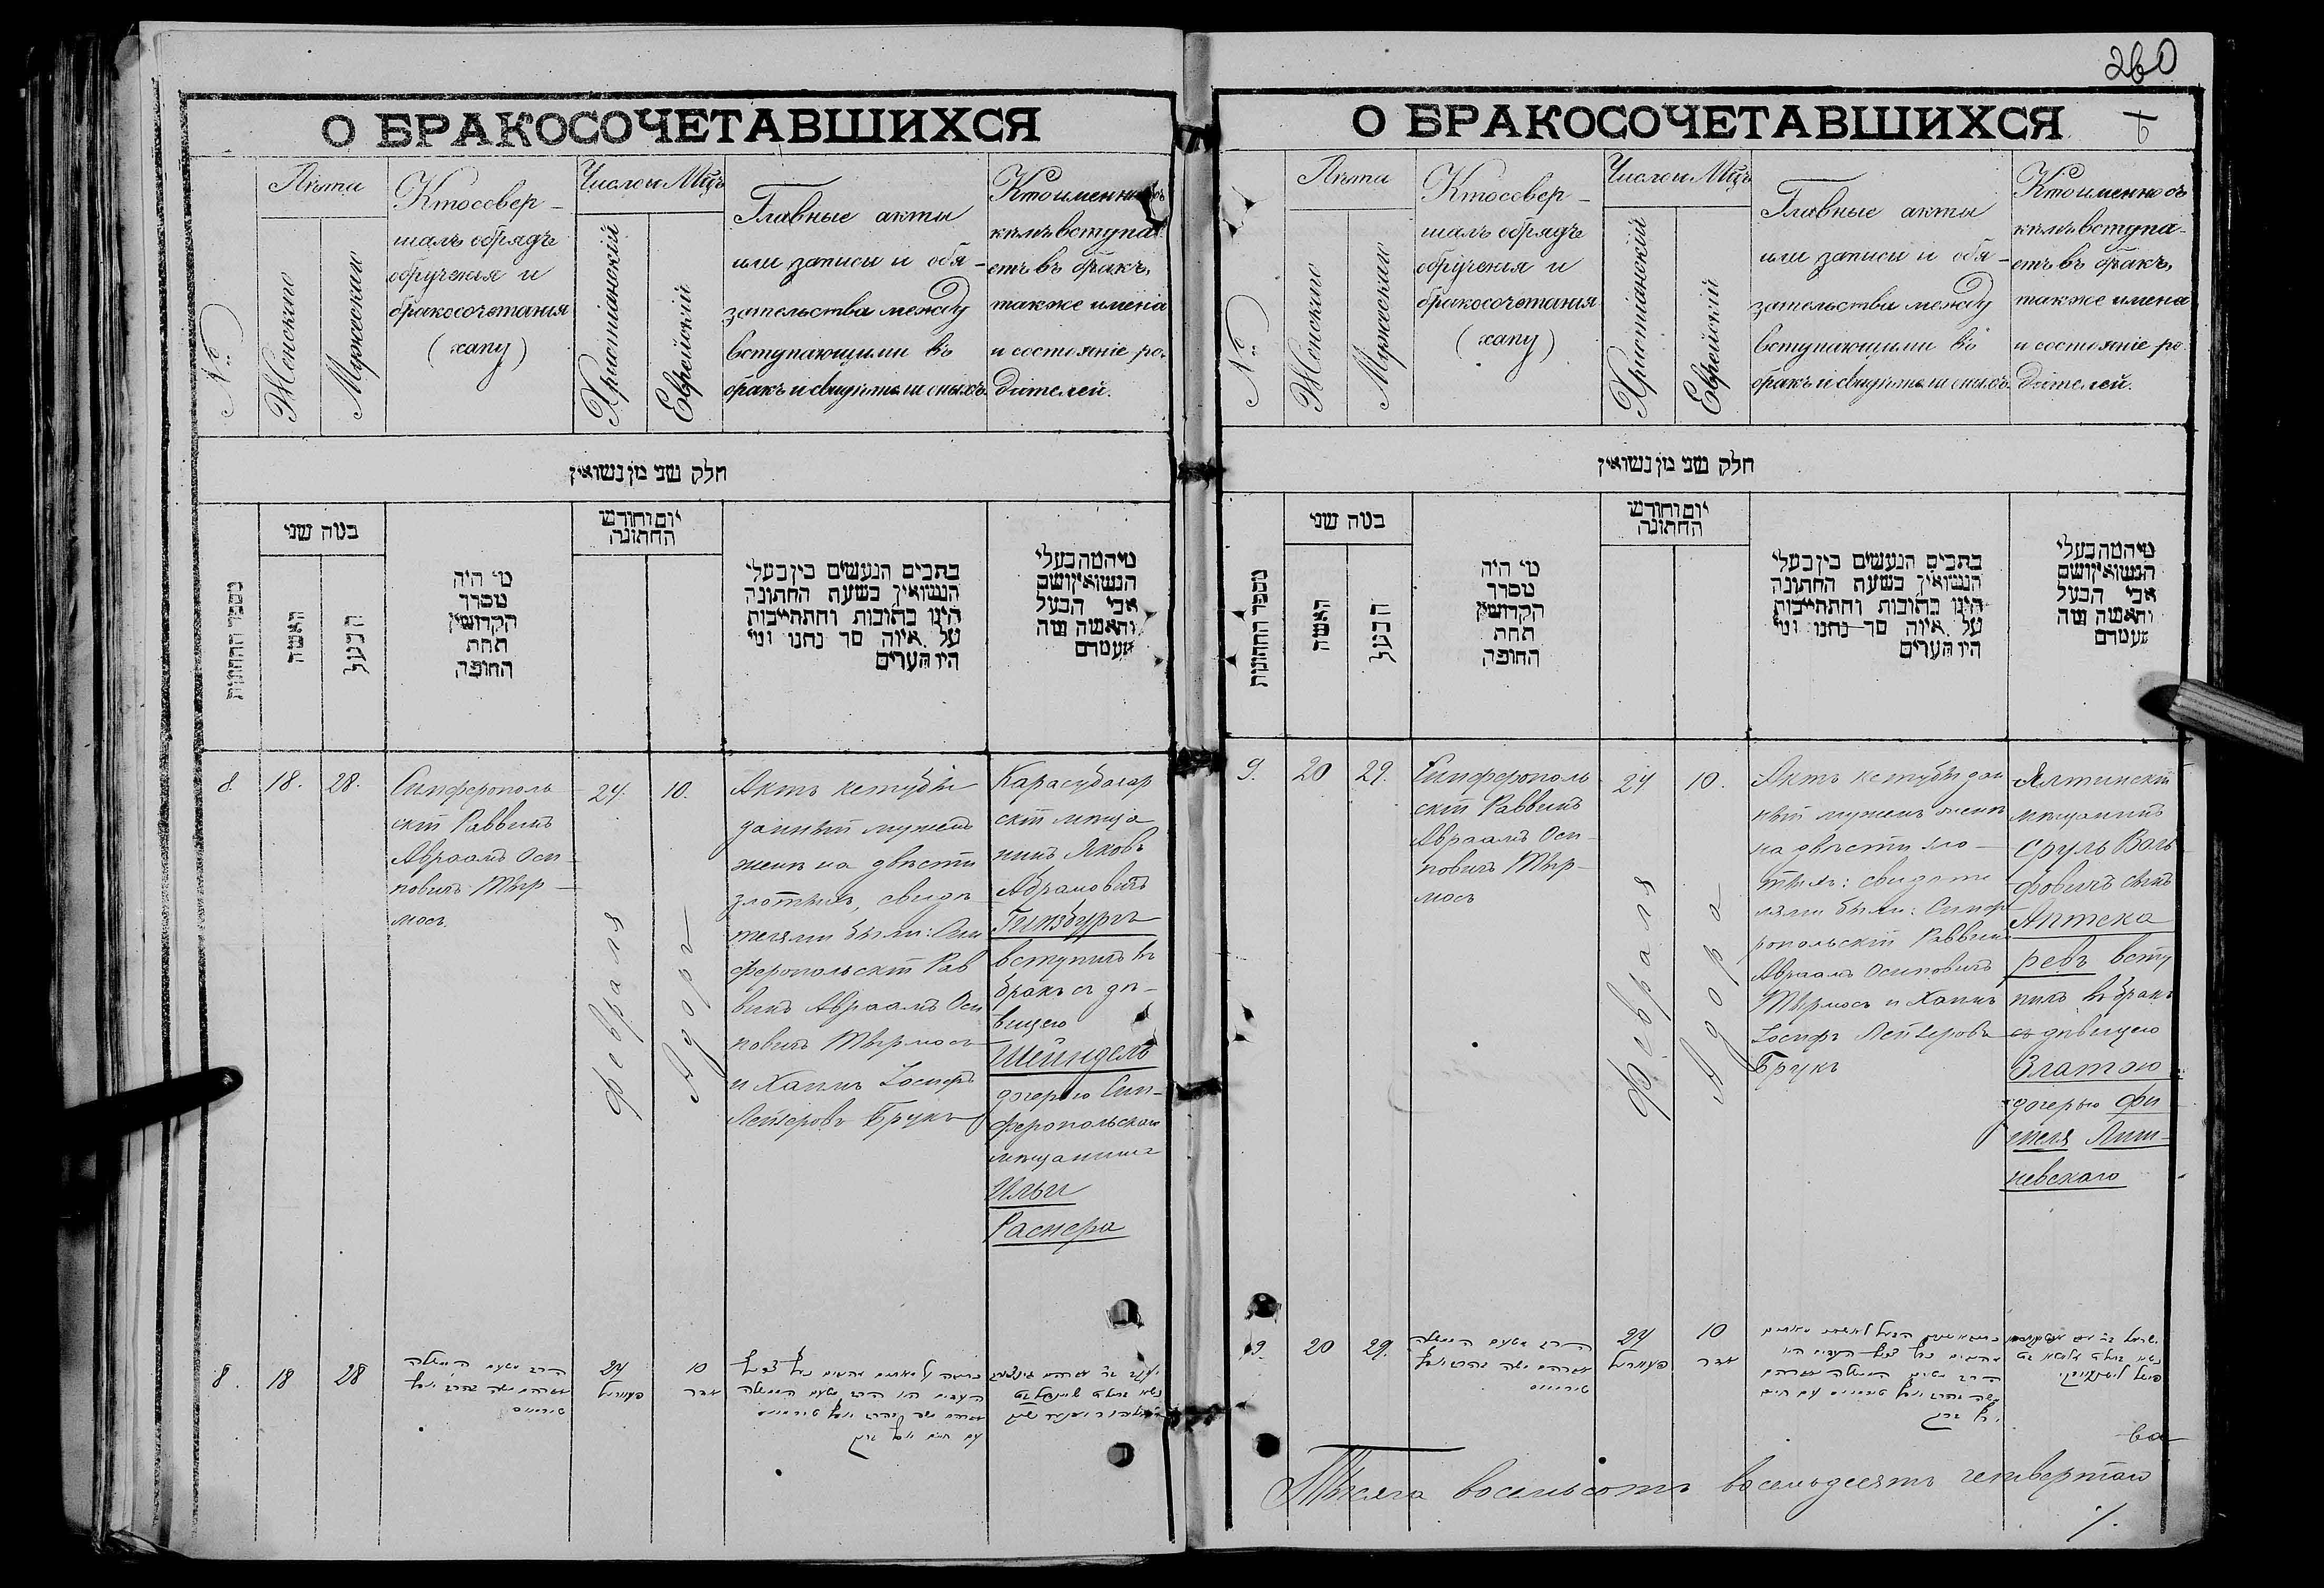 260
О БРАКОСОЧЕТАВШИХСЯ
№
Лѣта
Женскаго
Мужескаго
Кто совер-
шалъ обрядъ
обрученія и
бракосочетанія
(хапу)
Число и Мѣцъ
Христіанскій
Еврейскій
Главные акты
или записи и обя-
зательства между
вступающими въ
бракъ и свидѣтели оныхъ.
Кто именно съ
кѣмъ вступа-
етъ въ бракъ,
также имена
и состояніе ро-
дителей.
חלק שני מן נשואין
מספר החתונות
כמה שני
האשה
הבעל
מי היה
מסדר
הקדושין
תחת
החופה
יום וחודש
החתונה
כתבים הנעשים בין בעלי
הנשואין בשעת החתונה
היינו כתובות והתחייבות
על איזה סך נתנו ומי
היו העדים
מי המה בעלי
הנשואין ושם
אבי הבעל
והאשה ומה
מעמדם
8
18.
28.
Симферополь
скій Раввинъ
Авраамъ Оси-
повичъ Тыр-
мосъ
24.
Февраля
10.
Адоръ
Актъ кетубы
данный мужемъ
женѣ на двѣсти
злотыхъ, свидѣ
телями были: Сим
феропольскій Рав
винъ Авраамъ Оси
повичъ Тырмосъ
и Хаимъ Іосифъ
Лейзеровъ Брукъ
Карасубазар
скій мѣща
нинъ Яковъ
Абрамовичъ
Гинзбургъ
вступилъ въ
бракъ съ дѣ-
вицею
Шейндель
дочерью Сим-
феропольскаго
мѣщанина
Ильи
Раснера
8.
18
28
24
פעווראל
10
אדר
О БРАКОСОЧЕТАВШИХСЯ
№
Лѣта
Женскаго
Мужескаго
Кто совер-
шалъ обрядъ
обрученія и
бракосочетанія
(хапу)
Число и Мѣцъ
Христіанскій
Еврейскій
Главные акты
или записи и обя-
зательства между
вступающими въ
бракъ и свидѣтели оныхъ.
Кто именно съ
кѣмъ вступа-
етъ въ бракъ,
также имена
и состояніе ро-
дителей.
חלק שני מן נשואין
מספר החתונות
כמה שני
האשה
הבעל
מי היה
מסדר
הקדושין
תחת
החופה
יום וחודש
החתונה
כתבים הנעשים בין בעלי
הנשואין בשעת החתונה
היינו כתובות והתחייבות
על איזה סך נתנו ומי
היו העדים
מי המה בעלי
הנשואין ושם
אבי הבעל
והאשה ומה
מעמדם
9.
20
29.
Симферополь
скій Раввинъ
Авраамъ Оси-
повичъ Тыр-
мосъ
24
Февраля
10.
Адора
Актъ кетубы дан
ный мужемъ женѣ
на двѣсти зло-
тыхъ: свидѣте
лями были: Симфе
ропольскій Раввинъ
Авраамъ Осиповичъ
Тырмосъ и Хаимъ
Іосифъ Лейзеровъ
Брукъ
Ялтинскій
мѣщанинъ
Сруль Воль
фовичъ сынъ
Аптека
ревъ всту
пилъ въ бракъ
съ дѣвицею
Златою
дочерью Фи
шеля Лиш-
невскаго
9.
20
29.
24
פעווראל
10
אדר
ва
Тысяча восемьсотъ восемьдесятъ четвертаго